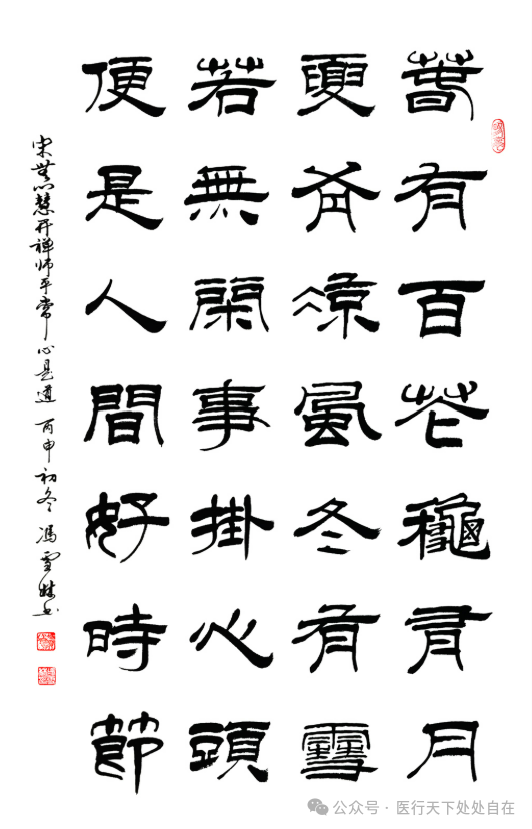 萅有百花龝有月
夏有涼風冬有雪
若無閑事掛心頭
便是人間好時節
宋無门慧开禅师平常心是道 丙申初冬 冯雪书
公众号 · 医行天下处处自在